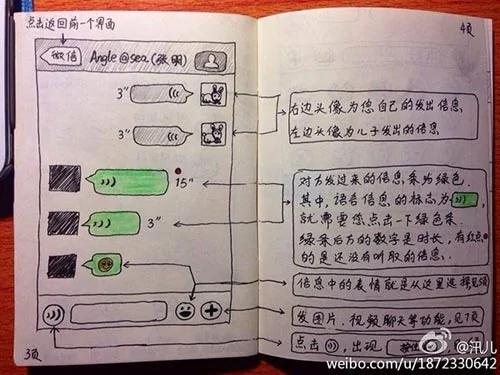 点击返回前一个界面
微信
Angle@sea(张明)
3"
3"
15"
3"
3页
4页
右边头像为您自己的发出信息,
左边头像为儿子发出的信息
对方发过来的信息条为绿色.
其中,语音信息的标志为
就需要您点击一下绿色条
绿条后方的数字是时长,有红点
的是还没有听取的信息.
信息中的表情就是从这里选择见6页
发图片、视频聊天等功能,见7页
点击 ,出现
@汛儿
weibo.com/u/1872330642